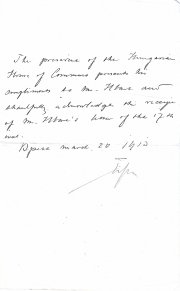 The president of the Hungarian
House of Commons presents his
compliments to Mr. and
thankfully acknowledges the receipt
of Mr. letter of the 17th
inst.
Bpest march 20 1913